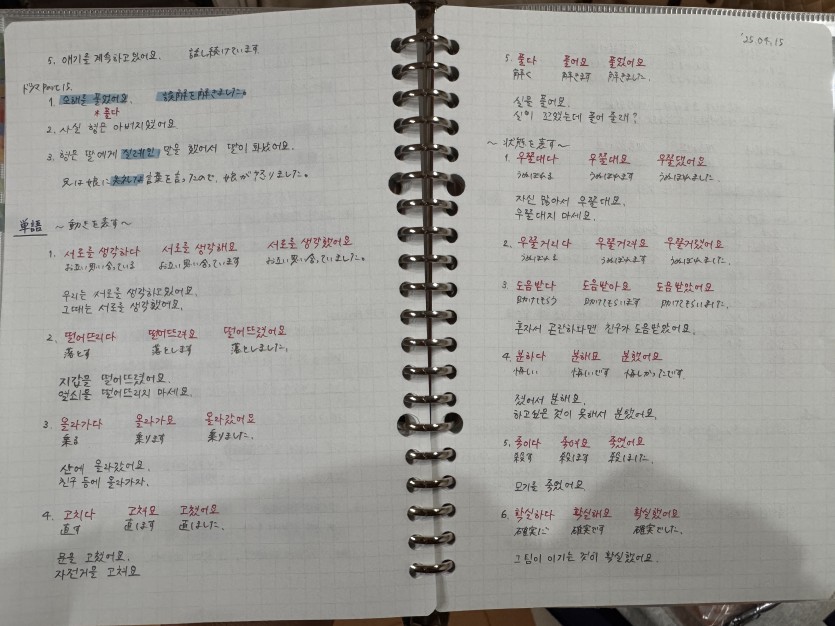 5. 얘기를 계속하고있어요. 話し続けています
ドラマ Part 15.
1. 오해를 풀었어요. 誤解を解きました。
* 풀다
2. 사실 형은 아버지였어요
3. 형은 딸에게 실례인 말을 했어서 딸이 화났어요.
兄は娘に失礼な言葉を言ったので、娘が怒りました。
単語 ～動きを表す～
1. 서로를 생각하다 서로를 생각해요 서로를 생각했어요
お互い思い合っている お互い思い合っています お互い思い合っていました。
우리는 서로를 생각하고있어요.
그때는 서로를 생각했어요.
2. 떨어뜨리다 떨어뜨려요 떨어뜨렸어요
落とす 落とします 落としました。
지갑을 떨어뜨렸어요.
열쇠를 떨어뜨리지 마세요.
3. 올라가다 올라가요 올라갔어요
乗る 乗ります 乗りました。
산에 올라갔어요.
친구 등에 올라가자.
4. 고치다 고쳐요 고쳤어요
直す 直します 直しました.
문을 고쳤어요.
자전거를 고쳐요
'25.04.15
5. 풀다 풀어요 풀었어요
解く 解きます 解きました.
실을 풀어요.
실이 꼬였는데 풀어 줄래?
～状態を表す～
1. 우쭐대다 우쭐대요 우쭐댔어요
うぬぼれる うぬぼれます うぬぼれました.
자신 많아서 우쭐대요.
우쭐대지 마세요.
2. 우쭐거리다 우쭐거려요 우쭐거렸어요
うぬぼれる うぬぼれます うぬぼれました.
3. 도움받다 도움받아요 도움받았어요
助けてもらう 助けてもらいます 助けてもらいました.
혼자서 곤란하다면 친구가 도움받았어요.
4. 분하다 분해요 분했어요
悔しい 悔しいです 悔しかったです
졌어서 분해요.
하고싶은 것이 못해서 분했어요.
5. 죽이다 죽여요 죽였어요
殺す 殺します 殺しました.
모기를 죽였어요.
6. 확실하다 확실해요 확실했어요
確実だ 確実です 確実でした.
그팀이 이기는 것이 확실했어요.